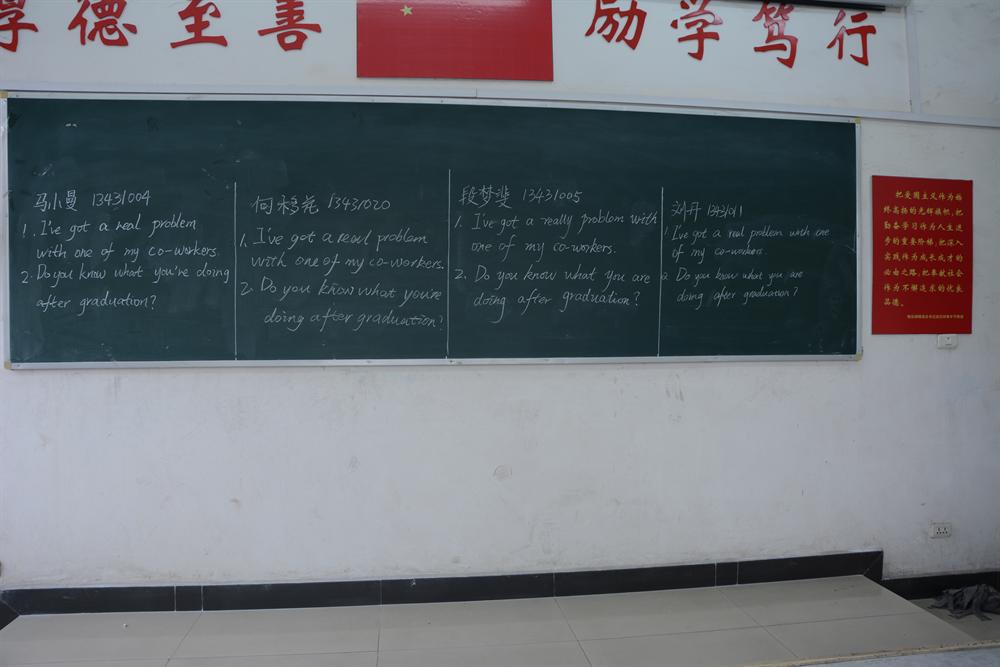 厚德至善
励学笃行
马小曼 13431004
1. I've got a real problem
with one of my co-workers.
2. Do you know what you're doing
after graduation?
13431020
1. I've got a real problem
with one of my co-workers.
2. Do you know what you're
doing after graduation?
段梦斐 13431005
1. I've got a really problem with
one of my co-workers.
2. Do you know what you are
doing after graduation?
刘丹 13431011
1. I've got a real problem with one
of my co-workers.
2. Do you know what you are
doing after graduation?
把爱国主义作为始
终高扬的光辉旗帜,把
勤奋学习作为人生进
步的重要阶梯,把深入
实践作为成长成才的
必由之路,把奉献社会
作为不懈追求的优良
品德。